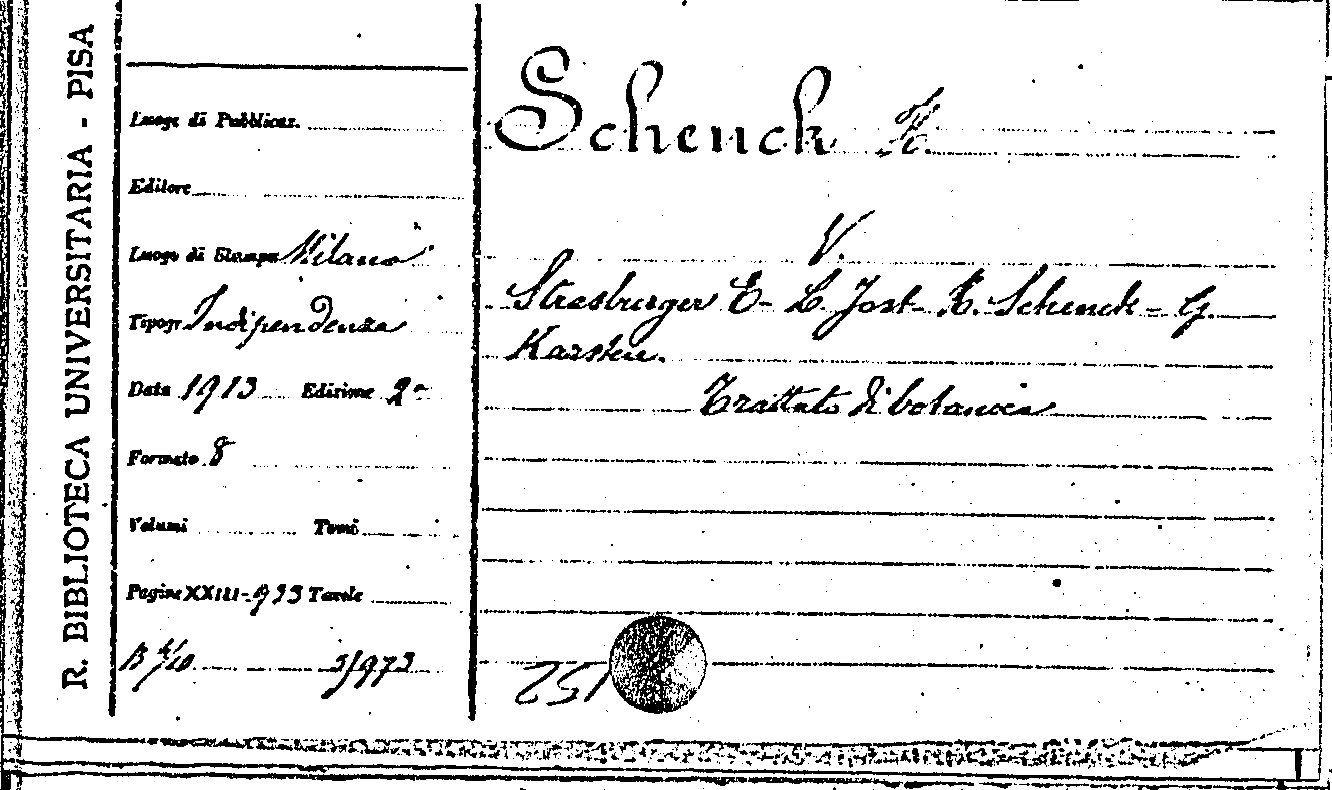 R. BIBLIOTECA UNIVERSITARIA - PISA
Luogo di Pubblicaz.
Editore
Luogo di Stampa Milano
Tipogr. Indipendenza
Data 1913 Edizione 2ª
Formato 8
Volumi Tomi
Pagine XXIII-933 Tavole
Schenck H.
V.
Strasburger E- L. Jost- H. Schenck - G.
Karsten.
Trattato di botanica
152